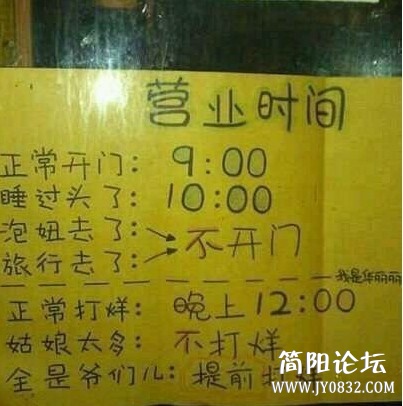 营业时间
正常开门：9:00
睡过头了：10:00
泡妞去了：
不开门
旅行去了：
我是华丽丽
正常打烊：晚上12:00
姑娘太多：不打烊
全是爷们儿：提前打
简阳论坛
www.JY0832.com